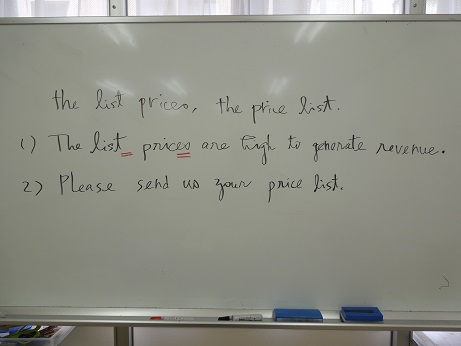 the list prices, the price list.
(1) The list prices are high to generate revenue.
2) Please send us your price list.